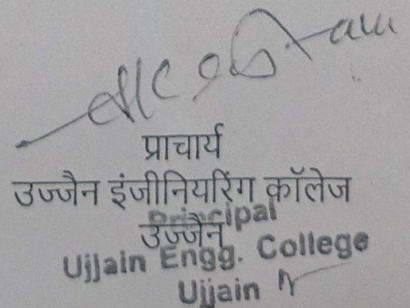 प्राचार्य
उज्जैन इंजीनियरिंग कॉलेज
Principal
उज्जैन
Ujjain Engg. College
Ujjain